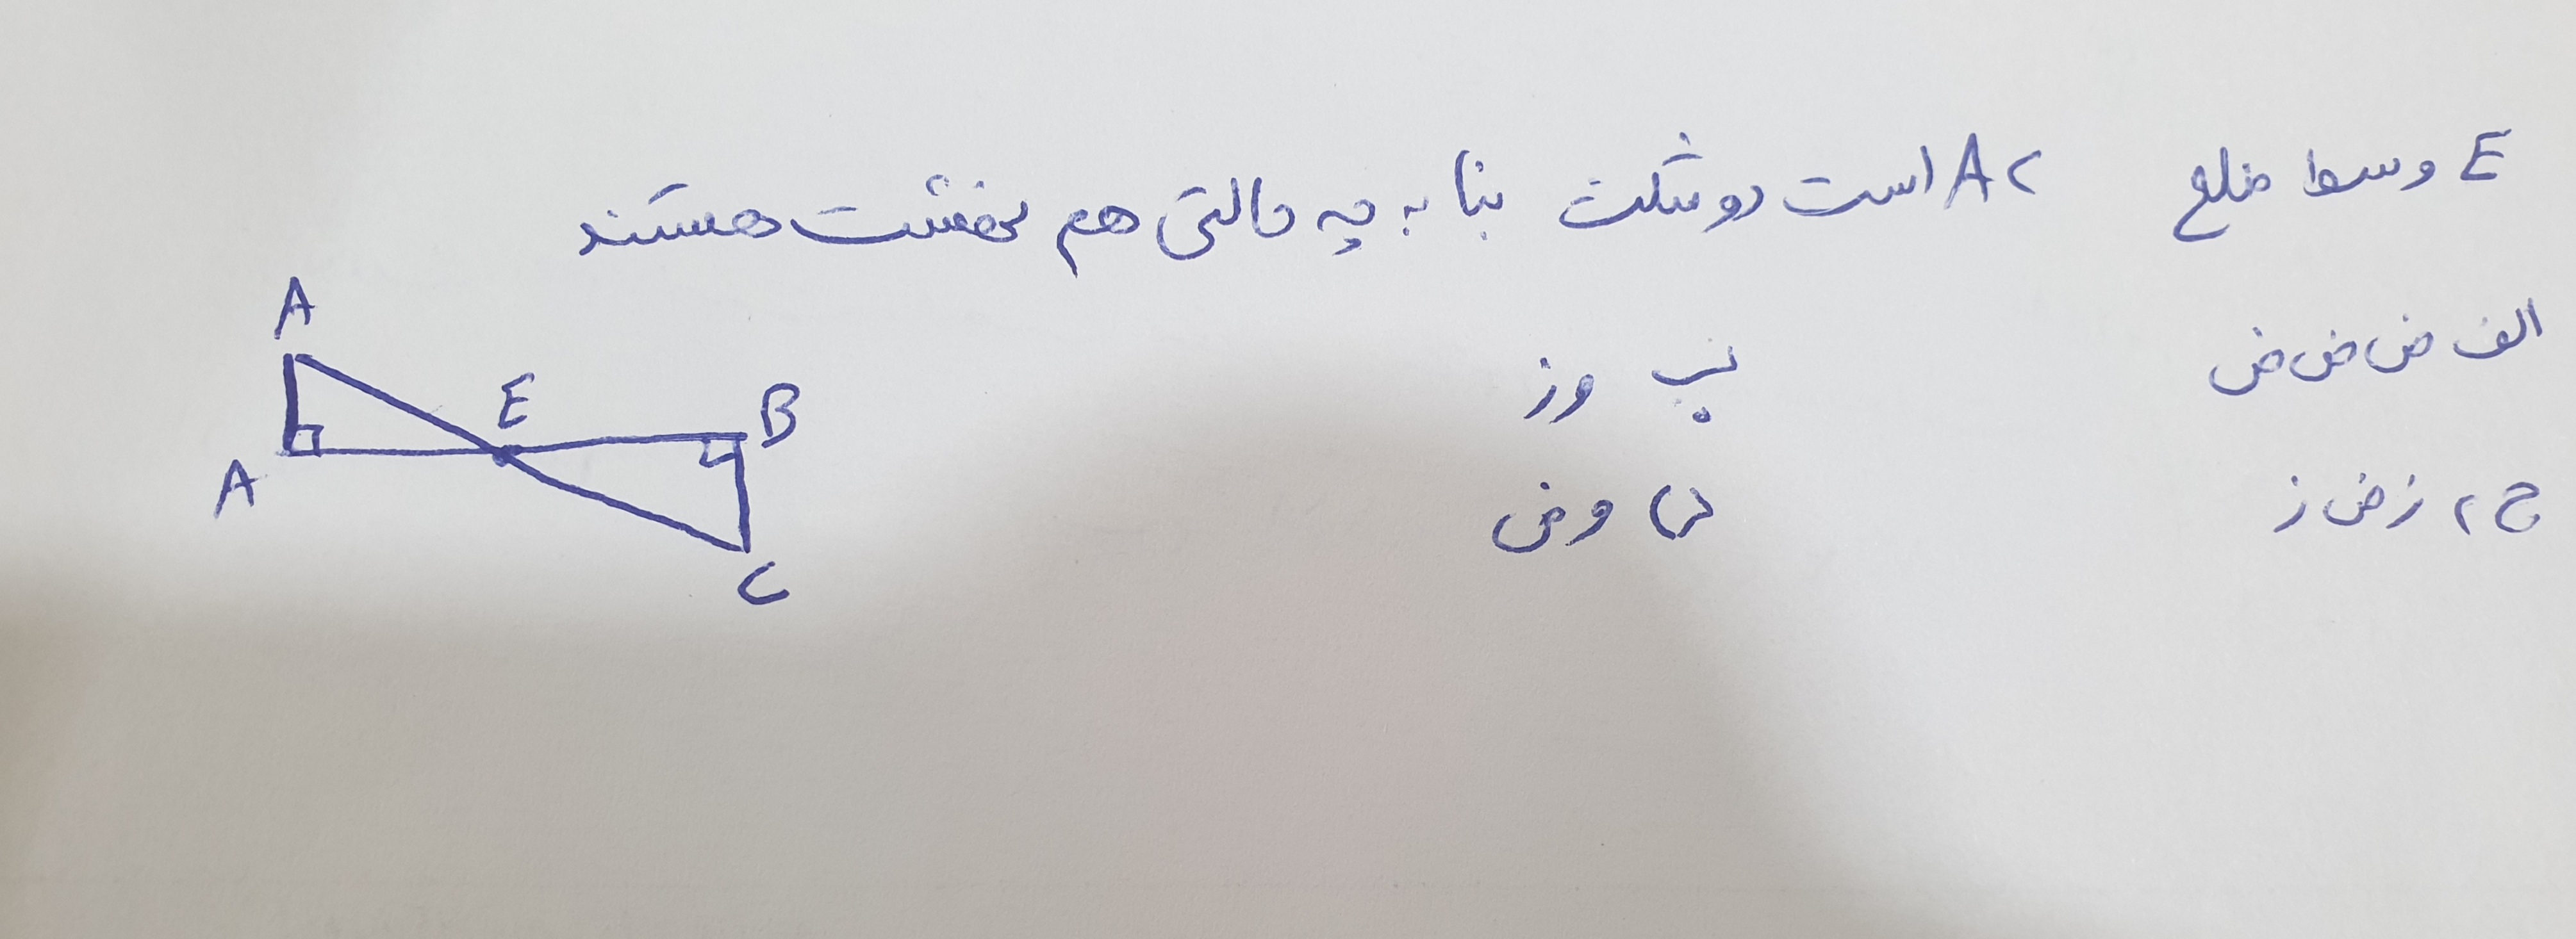 E وسط ضلع AC است دو مثلث بنا به چه حالتی هم نهشت هستند
الف ض ض ض
ب وز
ج) ز ض ز
د) وض
A
E
B
A
C